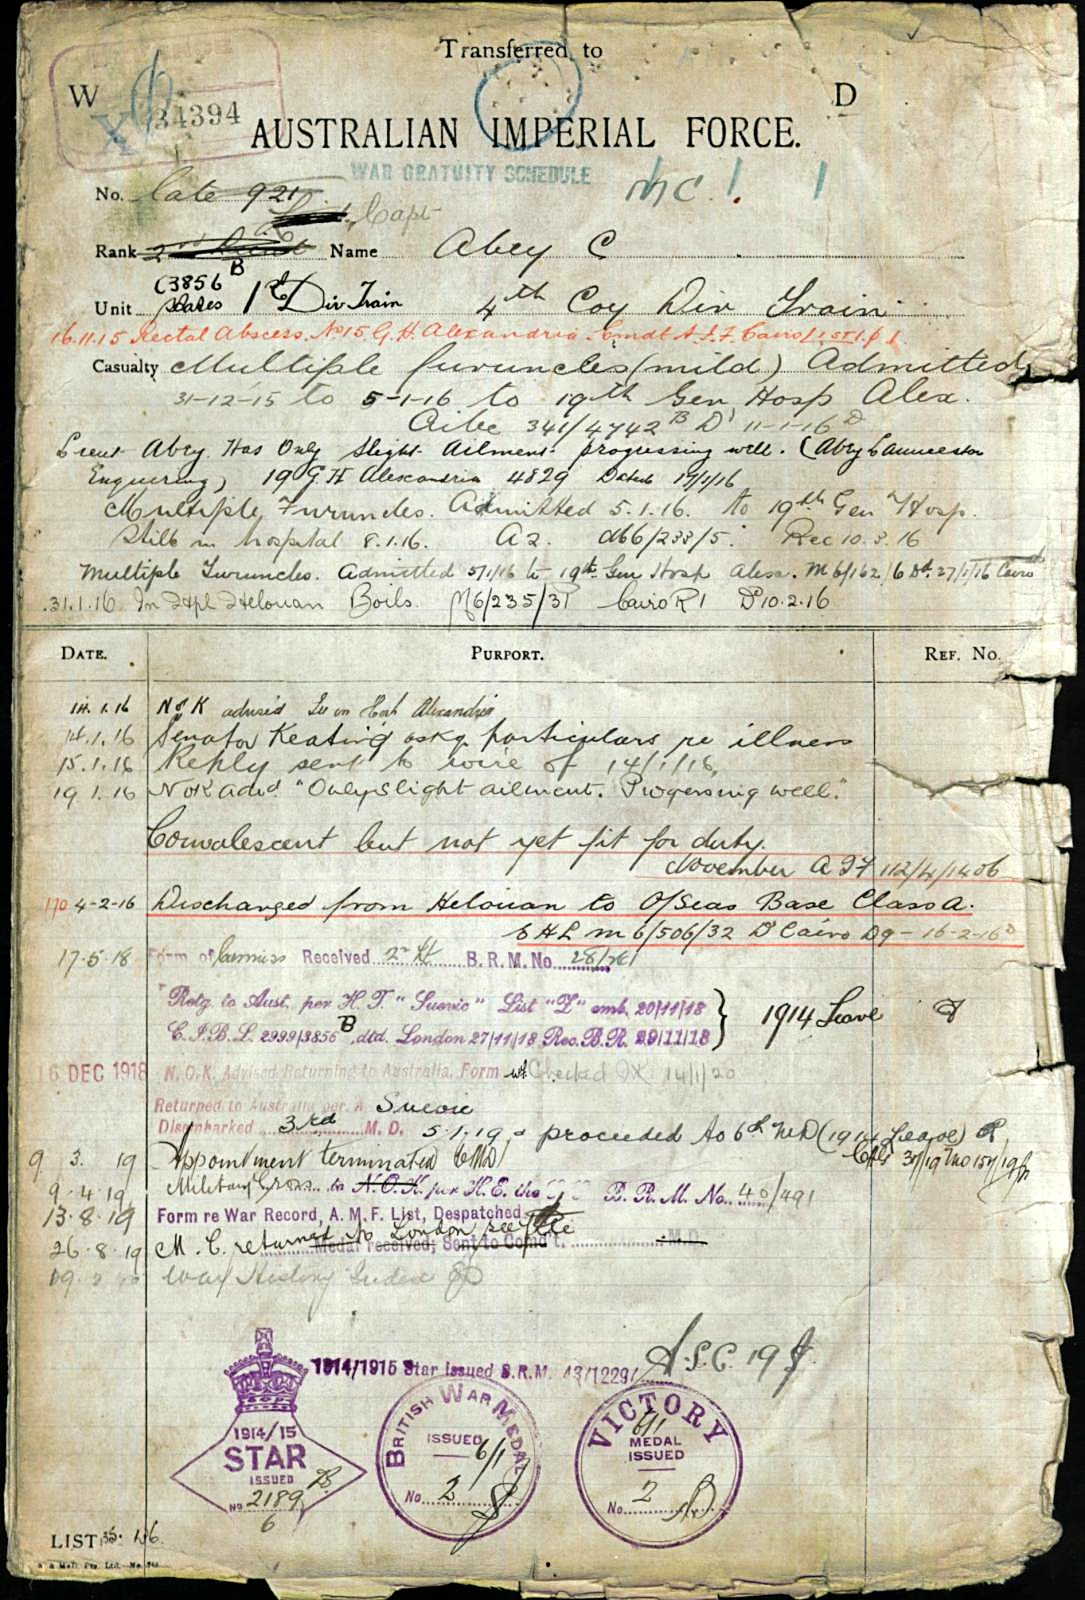 Transferred to
W D
34394
AUSTRALIAN IMPERIAL FORCE.
WAR GRATUITY SCHEDULE
MC! 1
No. late 921
Capt
Rank 2nd Lieut Name Abey C
B
C3856
Unit 1st Div Train 4th Coy Div Train
16.11.15 Rectal Abscess. No 15 G. H. Alexandria. Comdt A.I.F. Cairo
Casualty Multiple furuncles (mild) Admitted
31-12-15 to 5-1-16 to 19th Gen Hosp Alex.
341/4742 B D 11-1-16
Lieut Abey Has Only Slight Ailment progressing well. (Abey Launceston
Enquering) 19 G H Alexandria 4829 Dated
Multiple Furuncles. Admitted 5.1.16. to 19th Gen Hosp.
Still in hospital 8.1.16. A2. d66/233/5. Rec 10.3.16
Multiple Furuncles. Admitted 5/1/16 to 19th Gen Hosp Alexa. M6/162/6 Dd. 27/1/16 Cairo
31.1.16 In Hpl Helouan Boils. M6/235/31 Cairo R1 D 10.2.16
DATE. PURPORT. REF. NO.
14.1.16 N of K advised Lt in Hosp Alexandria
14.1.16 Senator Keating askg particulars re illness
15.1.16 Reply sent to wire of 14/1/16.
19.1.16 NOK advd "Only slight ailment. Progressing well."
Convalescent but not yet fit for duty.
November AIF 112/4/1406
170 4-2-16 Discharged from Helouan to O/Seas Base Class A.
m6/506/32 D Cairo D9-16-2-16
17.5.18 Form of Commiss Received 2nd Lt B.R.M. No. 28/26
Retg. to Aust. per H.T. "Suevic" List "Z" emb. 20/11/18 } 1914 Leave
C.I.B.L. 2999/3856 B, dtd. London 27/11/18 Rec. B.R. 29/11/18
16 DEC 1918 N.O.K. Advised Returning to Australia. Form Checked 14/1/20
Returned to Australia per Suevic
Disembarked 3rd M.D. 5.1.19 & proceeded to 6th MD (1914 Leave)
9 3. 19 Appointment terminated 6MD
9.4.19 Military Cross to N.O.K. per H.E. the G G B.R.M. No. 40/491
13.8.19 Form re War Record, A.M.F. List, Despatched
26.8.19 M.C. returned to London see file
Medal received; Sent to Comd't. M.D.
War History Index
1914/1915 Star Issued B.R.M. 43/12291
1914/15
STAR
ISSUED
No 2189
6
BRITISH WAR MEDAL
ISSUED 6/1
No. 2
VICTORY
6/1
MEDAL
ISSUED
No. 2
LIST